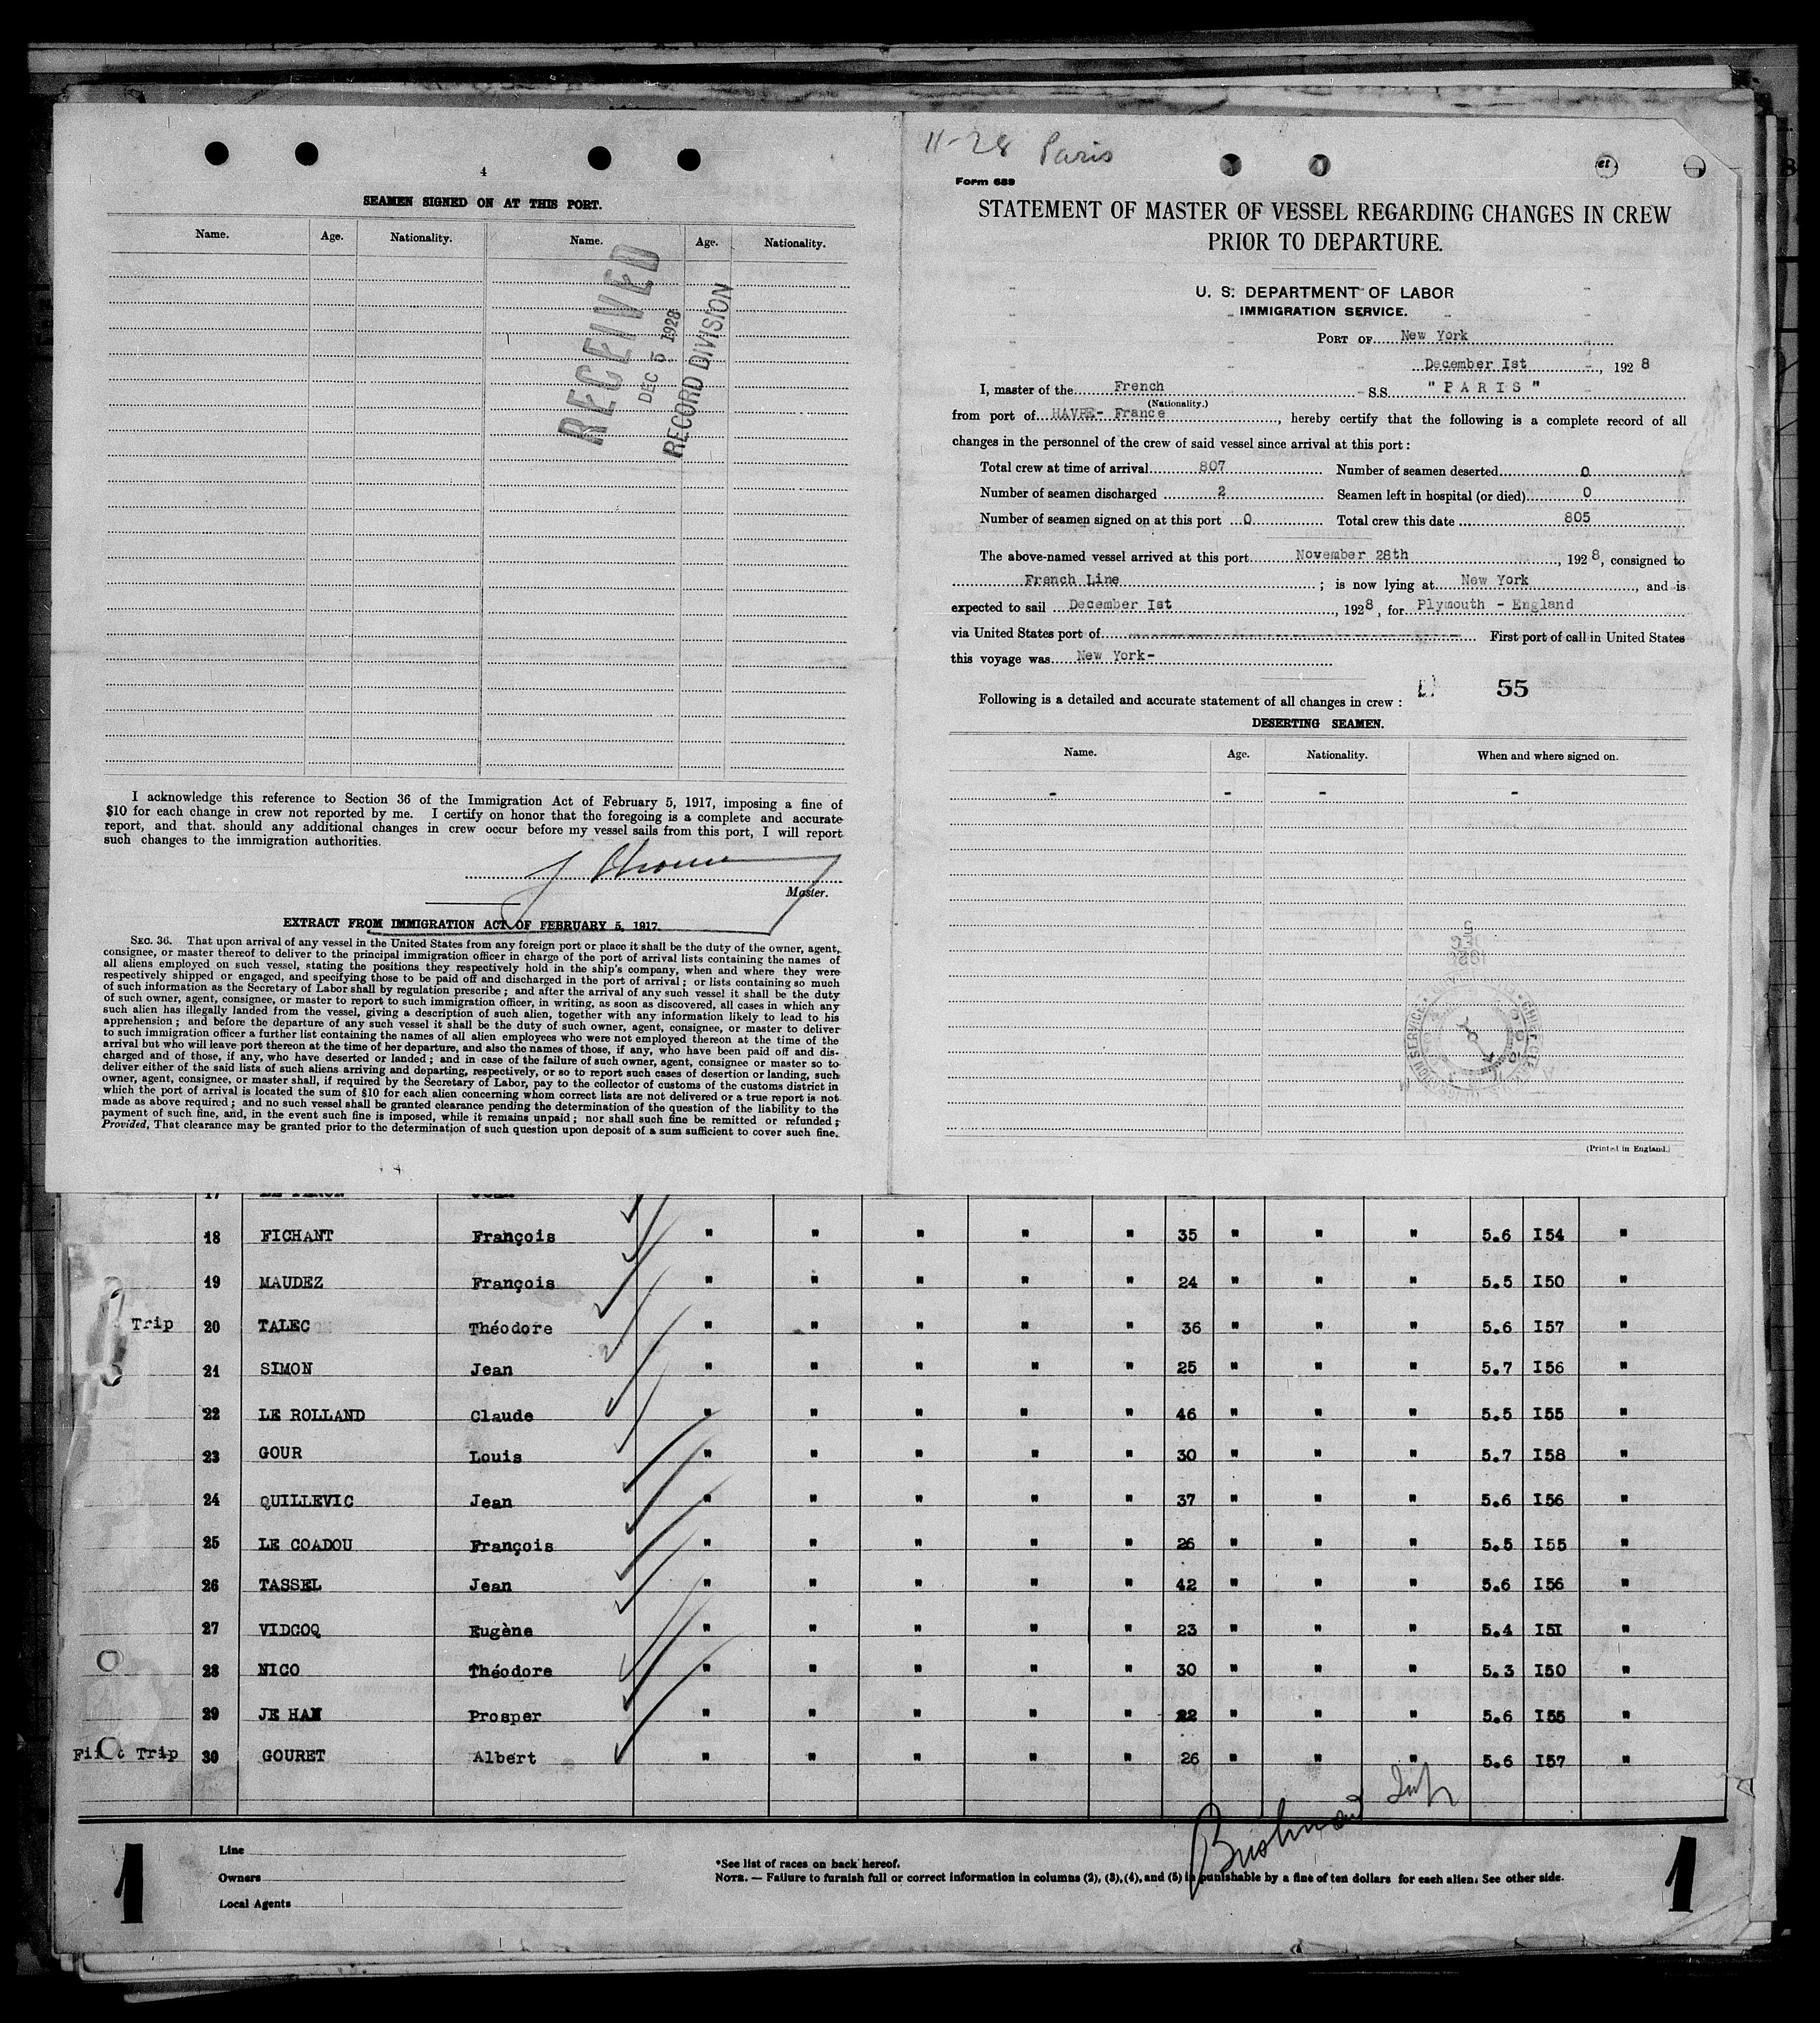 4
SEAMEN SIGNED ON AT THIS PORT.
Name. Age. Nationality. Name. Age. Nationality.
RECEIVED
DEC 5 1928
RECORD DIVISION
I acknowledge this reference to Section 36 of the Immigration Act of February 5, 1917, imposing a fine of
$10 for each change in crew not reported by me. I certify on honor that the foregoing is a complete and accurate
report, and that. should any additional changes in crew occur before my vessel sails from this port, I will report
such changes to the immigration authorities.
Master.
EXTRACT FROM IMMIGRATION ACT OF FEBRUARY 5, 1917.
SEC. 36. That upon arrival of any vessel in the United States from any foreign port or place it shall be the duty of the owner, agent,
consignee, or master thereof to deliver to the principal immigration officer in charge of the port of arrival lists containing the names of
all aliens employed on such vessel, stating the positions they respectively hold in the ship's company, when and where they were
respectively shipped or engaged, and specifying those to be paid off and discharged in the port of arrival; or lists containing so much
of such information as the Secretary of Labor shall by regulation prescribe; and after the arrival of any such vessel it shall be the duty
of such owner, agent, consignee, or master to report to such immigration officer, in writing, as soon as discovered, all cases in which any
such alien has illegally landed from the vessel, giving a description of such alien, together with any information likely to lead to his
apprehension; and before the departure of any such vessel it shall be the duty of such owner, agent, consignee, or master to deliver
to such immigration officer a further list containing the names of all alien employees who were not employed thereon at the time of the
arrival but who will leave port thereon at the time of her departure, and also the names of those, if any, who have been paid off and dis-
charged and of those, if any, who have deserted or landed; and in case of the failure of such owner, agent, consignee or master so to
deliver either of the said lists of such aliens arriving and departing, respectively, or so to report such cases of desertion or landing, such
owner, agent, consignee, or master shall, if required by the Secretary of Labor, pay to the collector of customs of the customs district in
which the port of arrival is located the sum of $10 for each alien concerning whom correct lists are not delivered or a true report is not
made as above required; and no such vessel shall be granted clearance pending the determination of the question of the liability to the
payment of such fine, and, in the event such fine is imposed, while it remains unpaid; nor shall such fine be remitted or refunded;
Provided, That clearance may be granted prior to the determination of such question upon deposit of a sum sufficient to cover such fine.
11-28 Paris
Form 689
STATEMENT OF MASTER OF VESSEL REGARDING CHANGES IN CREW
PRIOR TO DEPARTURE.
U. S. DEPARTMENT OF LABOR
IMMIGRATION SERVICE.
PORT OF New York
December Ist, 1928
I, master of the French S.S. "PARIS"
(Nationality.)
from port of HAVRE- France, hereby certify that the following is a complete record of all
changes in the personnel of the crew of said vessel since arrival at this port:
Total crew at time of arrival 807 Number of seamen deserted 0
Number of seamen discharged 2 Seamen left in hospital (or died) 0
Number of seamen signed on at this port 0 Total crew this date 805
The above-named vessel arrived at this port November 28th, 1928, consigned to
French Line; is now lying at New York, and is
expected to sail December Ist, 1928, for Plymouth - England
via United States port of First port of call in United States
this voyage was New York-
55
Following is a detailed and accurate statement of all changes in crew:
DESERTING SEAMEN.
Name. Age. Nationality. When and where signed on.
- - - -
(Printed in England.)
17
18 FICHANT François " " " " " 35 " " " 5.6 I54 "
19 MAUDEZ François " " " " " 24 " " " 5.5 I50 "
Trip 20 TALEC Théodore " " " " " 36 " " " 5.6 I57 "
21 SIMON Jean " " " " " 25 " " " 5.7 I56 "
22 LE ROLLAND Claude " " " " " 46 " " " 5.5 I55 "
23 GOUR Louis " " " " " 30 " " " 5.7 I58 "
24 QUILLEVIC Jean " " " " " 37 " " " 5.6 I56 "
25 LE COADOU François " " " " " 26 " " " 5.5 I55 "
26 TASSEL Jean " " " " " 42 " " " 5.6 I56 "
27 VIDCOQ Eugène " " " " " 23 " " " 5.4 I5I "
28 NICO Théodore " " " " " 30 " " " 5.3 I50 "
29 JE HAN Prosper " " " " " 22 " " " 5.6 I55 "
First Trip 30 GOURET Albert " " " " " 26 " " " 5.6 I57 "
1
Line
Owners
Local Agents
*See list of races on back hereof.
NOTE. — Failure to furnish full or correct information in columns (2), (3), (4), and (5) is punishable by a fine of ten dollars for each alien. See other side.
1